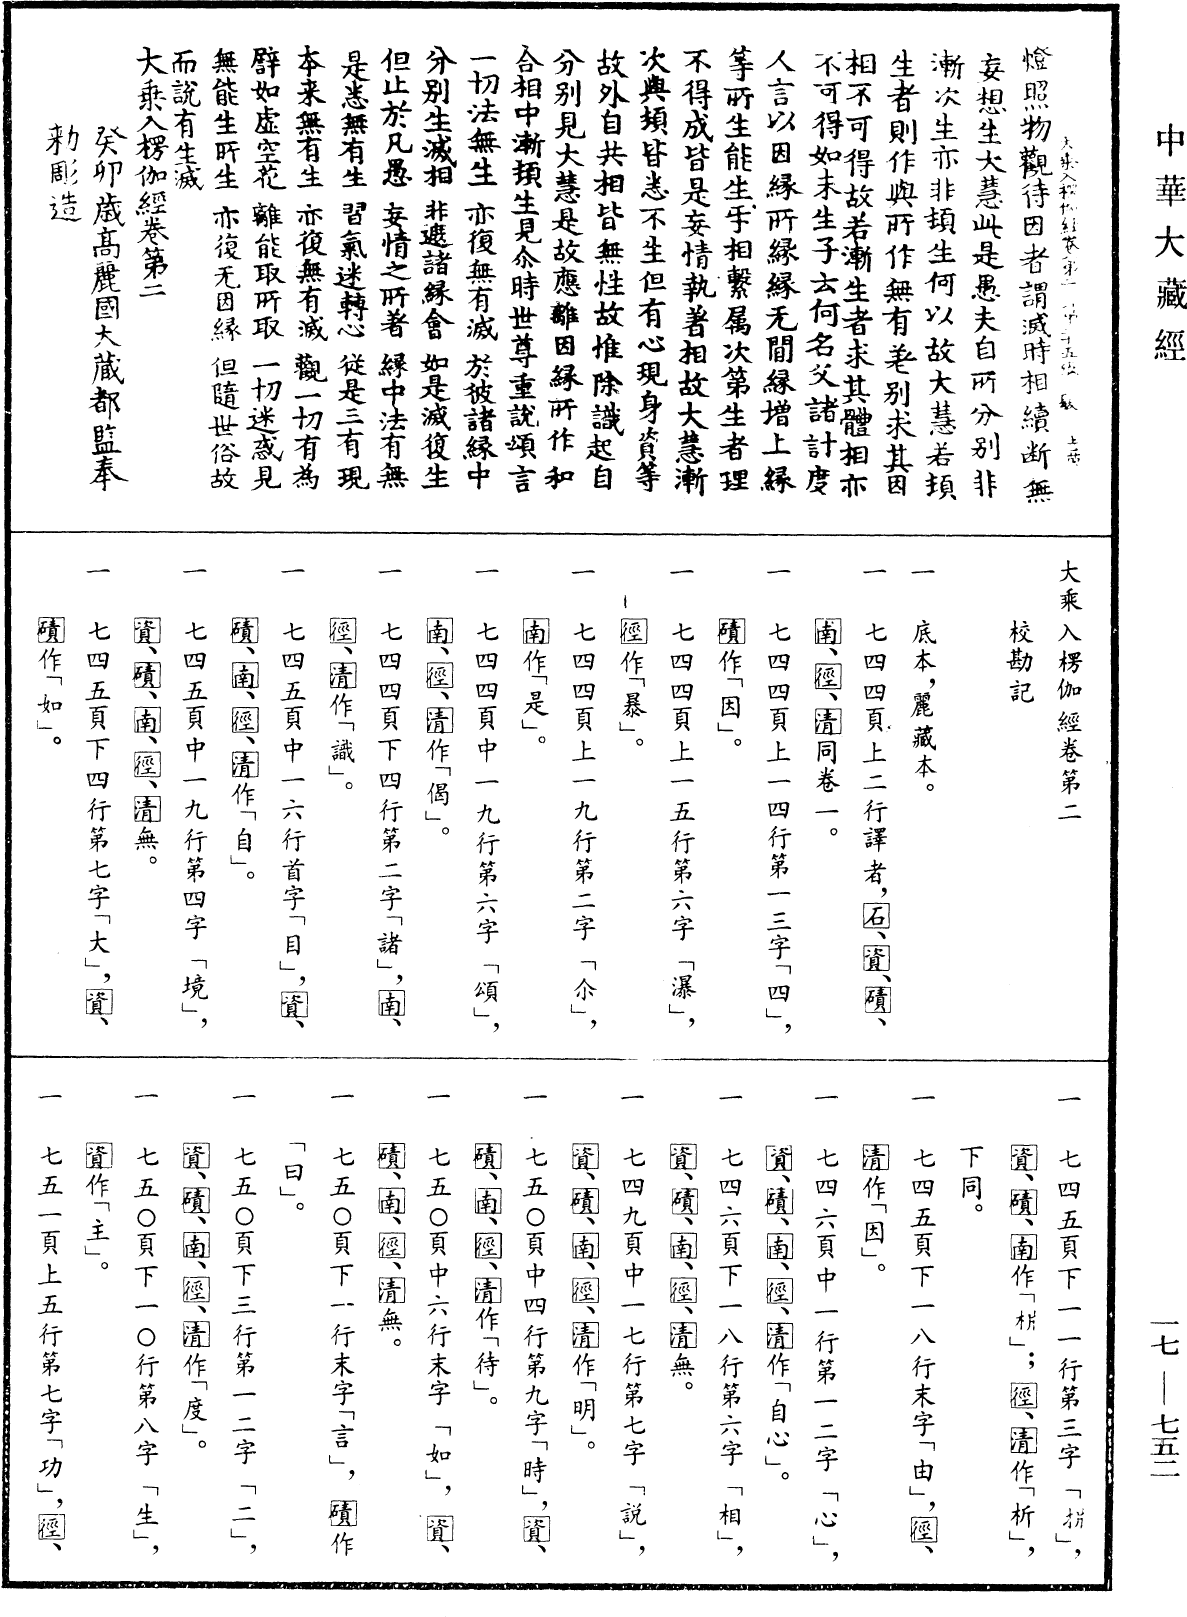 中華大藏經
燈照物觀待因者謂滅時相續断無
妄想生大慧此是愚夫自所分別非
漸次生亦非頓生何以故大慧若頓
生者則作與所作無有差別求其因
相不可得故若漸生者求其體相亦
不可得如未生子云何名父諸計度
人言以因緣所緣緣无間緣增上緣
等所生能生互相繫属次第生者理
不得成皆是妄情執著相故大慧漸
次與頓皆悉不生但有心現身資等
故外自共相皆無性故惟除識起自
分別見大慧是故應離因緣所作和
合相中漸頓生見尒時世尊重說頌言
一切法無生　亦復無有滅　於彼諸緣中
分別生滅相　非遮諸緣會　如是滅復生
但止於凡愚　妄情之所著　緣中法有無
是悉無有生　習氣迷轉心　從是三有現
本来無有生　亦復無有滅　觀一切有為
譬如虛空花　離能取所取　一切迷惑見
無能生所生　亦復无因緣　但隨世俗故
而說有生滅
大乘入楞伽經卷第二
癸卯歲高麗國大藏都監奉
勅彫造
大乘入楞伽經卷第二
校勘記
一　底本，麗藏本。
一　七四四頁上二行譯者，石、資、磧、
南、徑、清同卷一。
一　七四四頁上一四行第一三字「四」，
磧作「因」。
一　七四四頁上一五行第六字「瀑」，
徑作「暴」。
一　七四四頁上一九行第二字「尒」，
南作「是」。
一　七四四頁中一九行第六字「頌」，
南、徑、清作「偈」。
一　七四四頁下四行第二字「諸」，南、
徑、清作「識」。
一　七四五頁中一六行首字「目」，資、
磧、南、徑、清作「自」。
一　七四五頁中一九行第四字「境」，
資、磧、南、徑、清無。
一　七四五頁下四行第七字「大」，資、
磧作「如」。
一　七四五頁下一一行第三字「㭊」，
資、磧、南作「㭊」；徑、清作「析」，
下同。
一　七四五頁下一八行末字「由」，徑、
清作「因」。
一　七四六頁中一行第一二字「心」，
資、磧、南、徑、清作「自心」。
一　七四六頁下一八行第六字「相」，
資、磧、南、徑、清無。
一　七四九頁中一七行第七字「説」，
資、磧、南、徑、清作「明」。
一　七五〇頁中四行第九字「時」，資、
磧、南、徑、清作「待」。
一　七五〇頁中六行末字「如」，資、
磧、南、徑、清無。
一　七五〇頁下一行末字「言」，磧作
「曰」。
一　七五〇頁下三行第一二字「二」，
資、磧、南、徑、清作「度」。
一　七五〇頁下一〇行第八字「生」，
資作「主」。
一　七五一頁上五行第七字「功」，徑、
一七—七五二